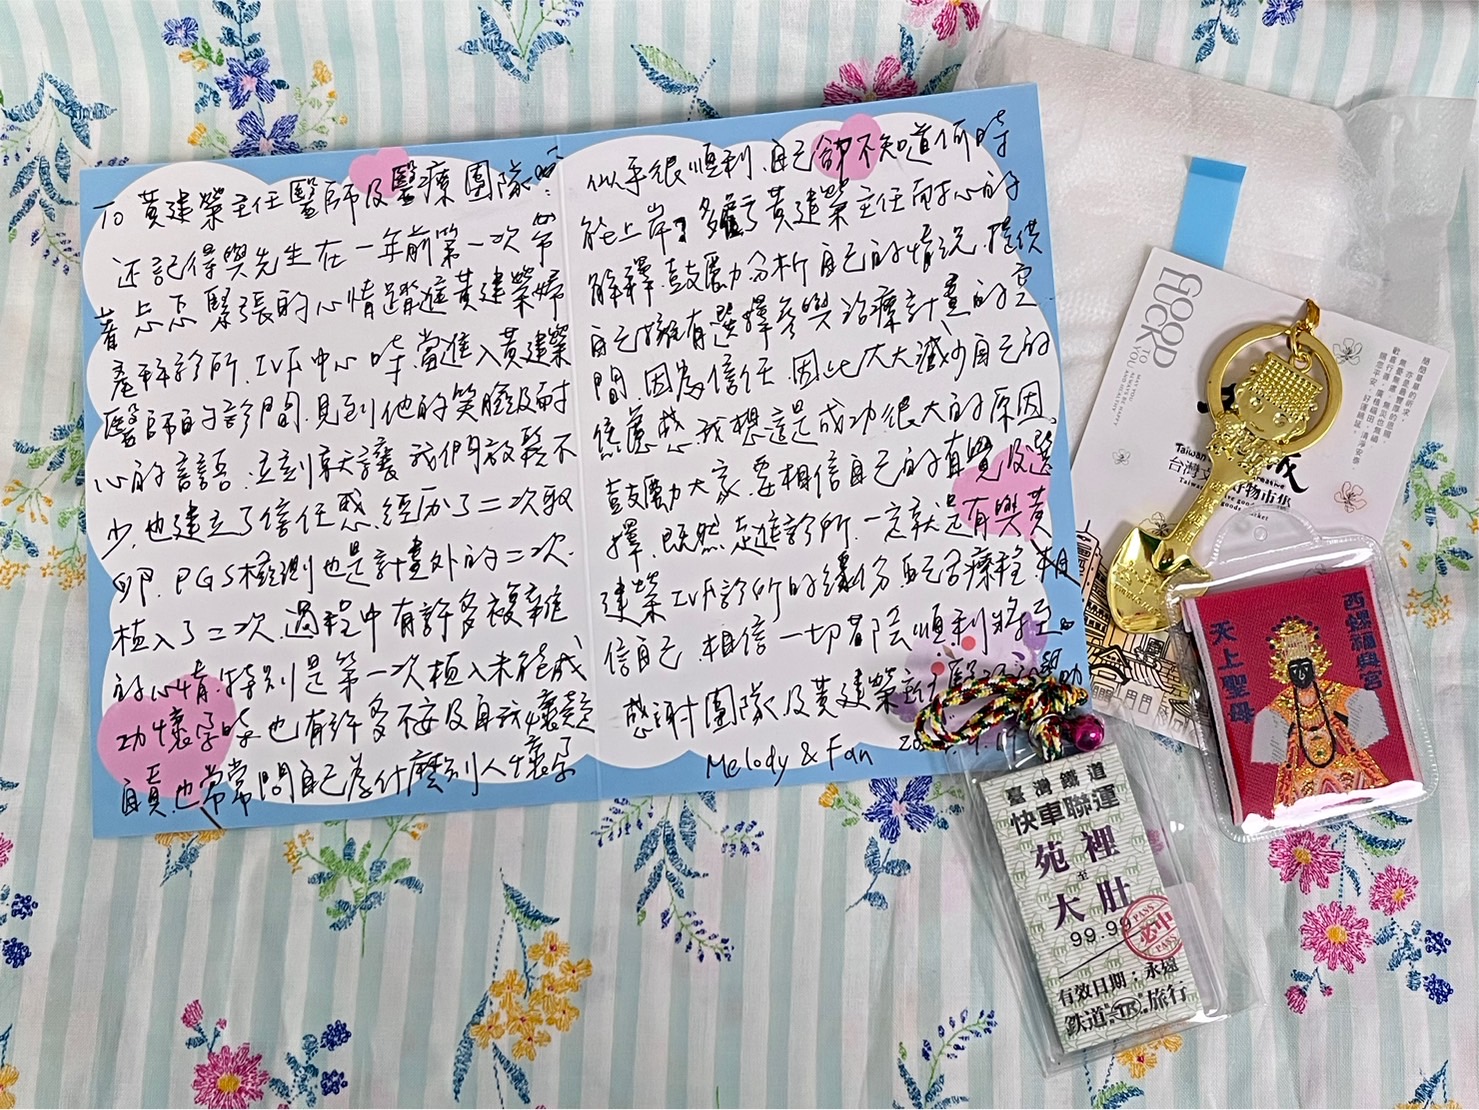 To 黃建榮主任醫師及醫療團隊:
還記得與先生在一年前第一次帶
著忐忑緊張的心情踏進黃建榮婦
產科診所.IVF中心時,當進入黃建榮
醫師的診間.見到他的笑臉及耐
心的話語.立刻就讓我們放鬆不
少,也建立了信任感.經歷了二次取
卵.PGS檢測也是計畫外的二次.
植入了二次.過程中有許多複雜
的心情.特別是第一次植入未能成
功懷孕時.也有許多不安及自我懷疑
自責.也常常問自己為什麼別人懷孕
似乎很順利.自己卻不知道何時
能上岸?多虧了黃建榮主任耐心的
解釋.鼓勵分析自己的情況.提供
自己擁有選擇參與治療計畫的空
間.因為信任.因此大大減少自己的
焦慮感.我想這是成功很大的原因.
鼓勵大家.要相信自己的直覺及選
擇.既然走進診所.一定就是有與黃
建榮IVF診所的緣份.配合療程.相
信自己.相信一切都會順利將至。
感謝團隊及黃建榮主任醫
Melody & Fan
GOOD
LUCK
TO
YOU
MAY YOU
ALWAYS BE HAPPY
AND HEALTHY
簡簡單單的祈求,
亦是最豐厚的恩賜
無憂無慮,無災也無禍
歡喜行善,廣植福田,清淨安泰
願您平安,好運綿延。
Taiwan
台灣
好物市集
西螺福興宮
天上聖母
臺灣鐵道
快車聯運
苑裡
至
大肚
99.99
PASS
必中
PASS
有效日期:永遠
鉄道 TR 旅行